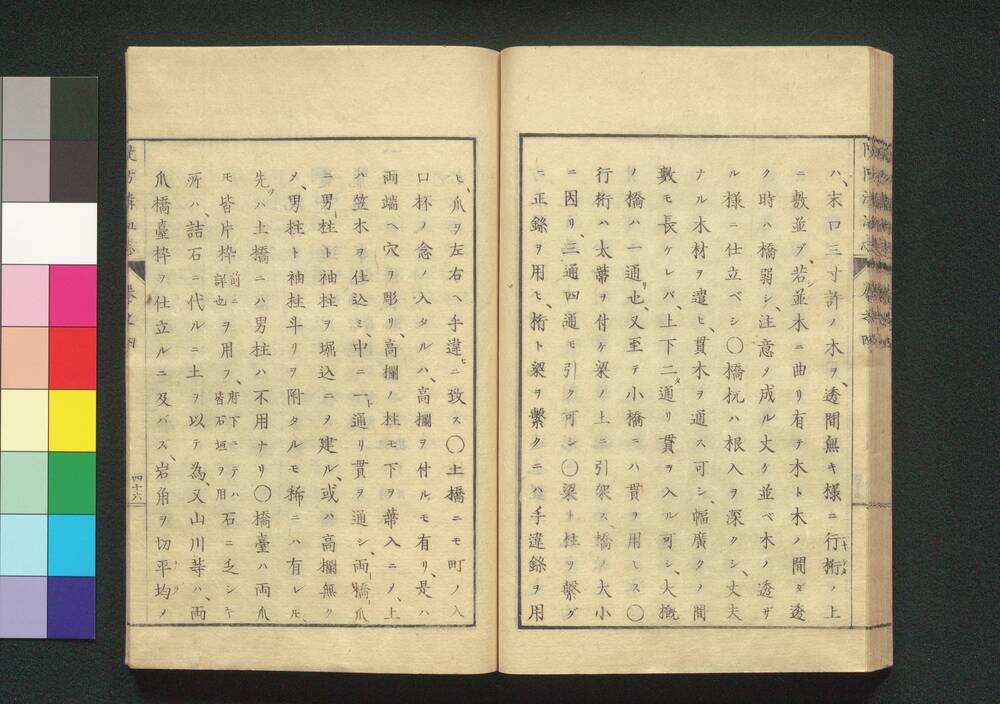 ハ、末口三寸許ノ木ヲ、透間無キ様ニ行桁ノ上
ニ敷並ブ、若並木ニ曲リ有テ木ト木ノ間ダ透
ク時ハ橋弱シ、注意メ成ル丈ケ並ベ木ノ透ザ
ル様ニ仕立ベシ〇橋杭ハ根入ヲ深クシ、丈夫
ナル木材ヲ遣ヒ、貫木ヲ通ス可シ、幅廣クノ間
數モ長ケレバ、上下二タ通リ貫ヲ入ル可シ、大概
ノ橋ハ一通リ也、又至テ小橋ニハ貫ヲ用ヒス〇
行桁ハ太蕱ヲ付ケ梁ノ上ニ引架ス、橋ノ大小
ニ因リ、三通四通モ引ク可シ〇梁ト柱ヲ繫グ
ニ正鎹ヲ用ヒ、桁ト梁ヲ繫クニハ手違鎹ヲ用
ヒ、爪ヲ左右ヘ手違ヒニ致ス〇土橋ニモ町ノ入
口杯ノ念ノ入タルハ、高欄ヲ付ルモ有リ、是ハ
両端ヘ穴ヲ彫リ、高欄ノ柱モ下ヲ蕱入ニノ、上
ハ笠木ヲ仕込ミ、中ニ一ト通リ貫ヲ通シ、両橋爪
ニ男柱ト袖柱ヲ堀込ニヲ建ル、或ハ高欄無ク
メ、男柱ト袖柱斗リヲ附タルモ稀ニハ有レモ、
先ツハ土橋ニハ男柱ハ不用ナリ〇橋臺ハ両爪
モ皆片枠前ニ詳也ヲ用フ、府下ニテハ皆石垣ヲ用石ニ乏シキ
所ハ、詰石ニ代ルニ土ヲ以テ為、又山川等ハ、両
爪橋臺枠ヲ仕立ルニ及バス、岩角ヲ切平均メ
四十六